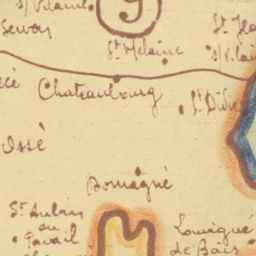 s/Vilaine
9
Servon
St Melaine
St Je
s/Vilai
Chateaubourg
St Didie
Ossé
Domagné
St Aubin
du
Pavail
Louvigné
de Bais